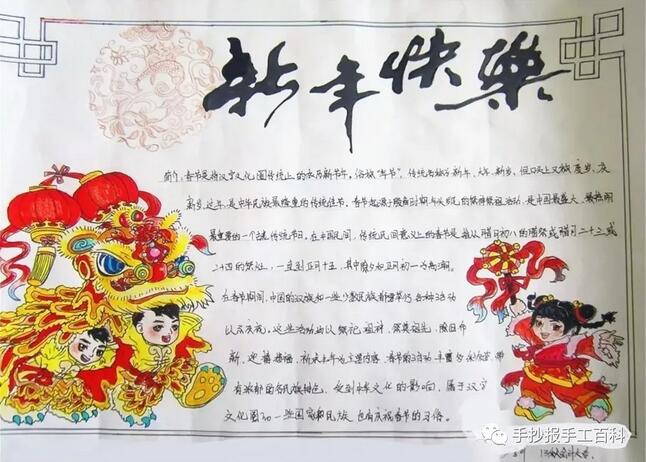 新年快樂
简介:春节是指汉字文化圈传统上的农历新年,俗称“年节”,传统名称为新年、大年、新岁,但口头上又称度岁、庆
新岁、过年,是中华民族最隆重的传统佳节。春节起源于殷商时期年头岁尾的祭神祭祖活动,是中国最盛大、最热闹
最重要的一个古老传统节日。在中国民间,传统民间意义上的春节是指从腊月初八的腊祭或腊月二十三或
二十四的祭灶,一直到正月十五,其中除夕和正月初一为高潮。
在春节期间,中国的汉族和一些少数民族都要举行各种活动
以示庆祝,这些活动均以祭祀祖神、祭奠祖先、除旧布
新、迎禧接福、祈求丰年为主要内容。春节的活动丰富多彩,带
有浓郁的各民族特色。受到中华文化的影响,属于汉字
文化圈的一些国家和民族也有庆祝春节的习俗。
手抄报手工百科